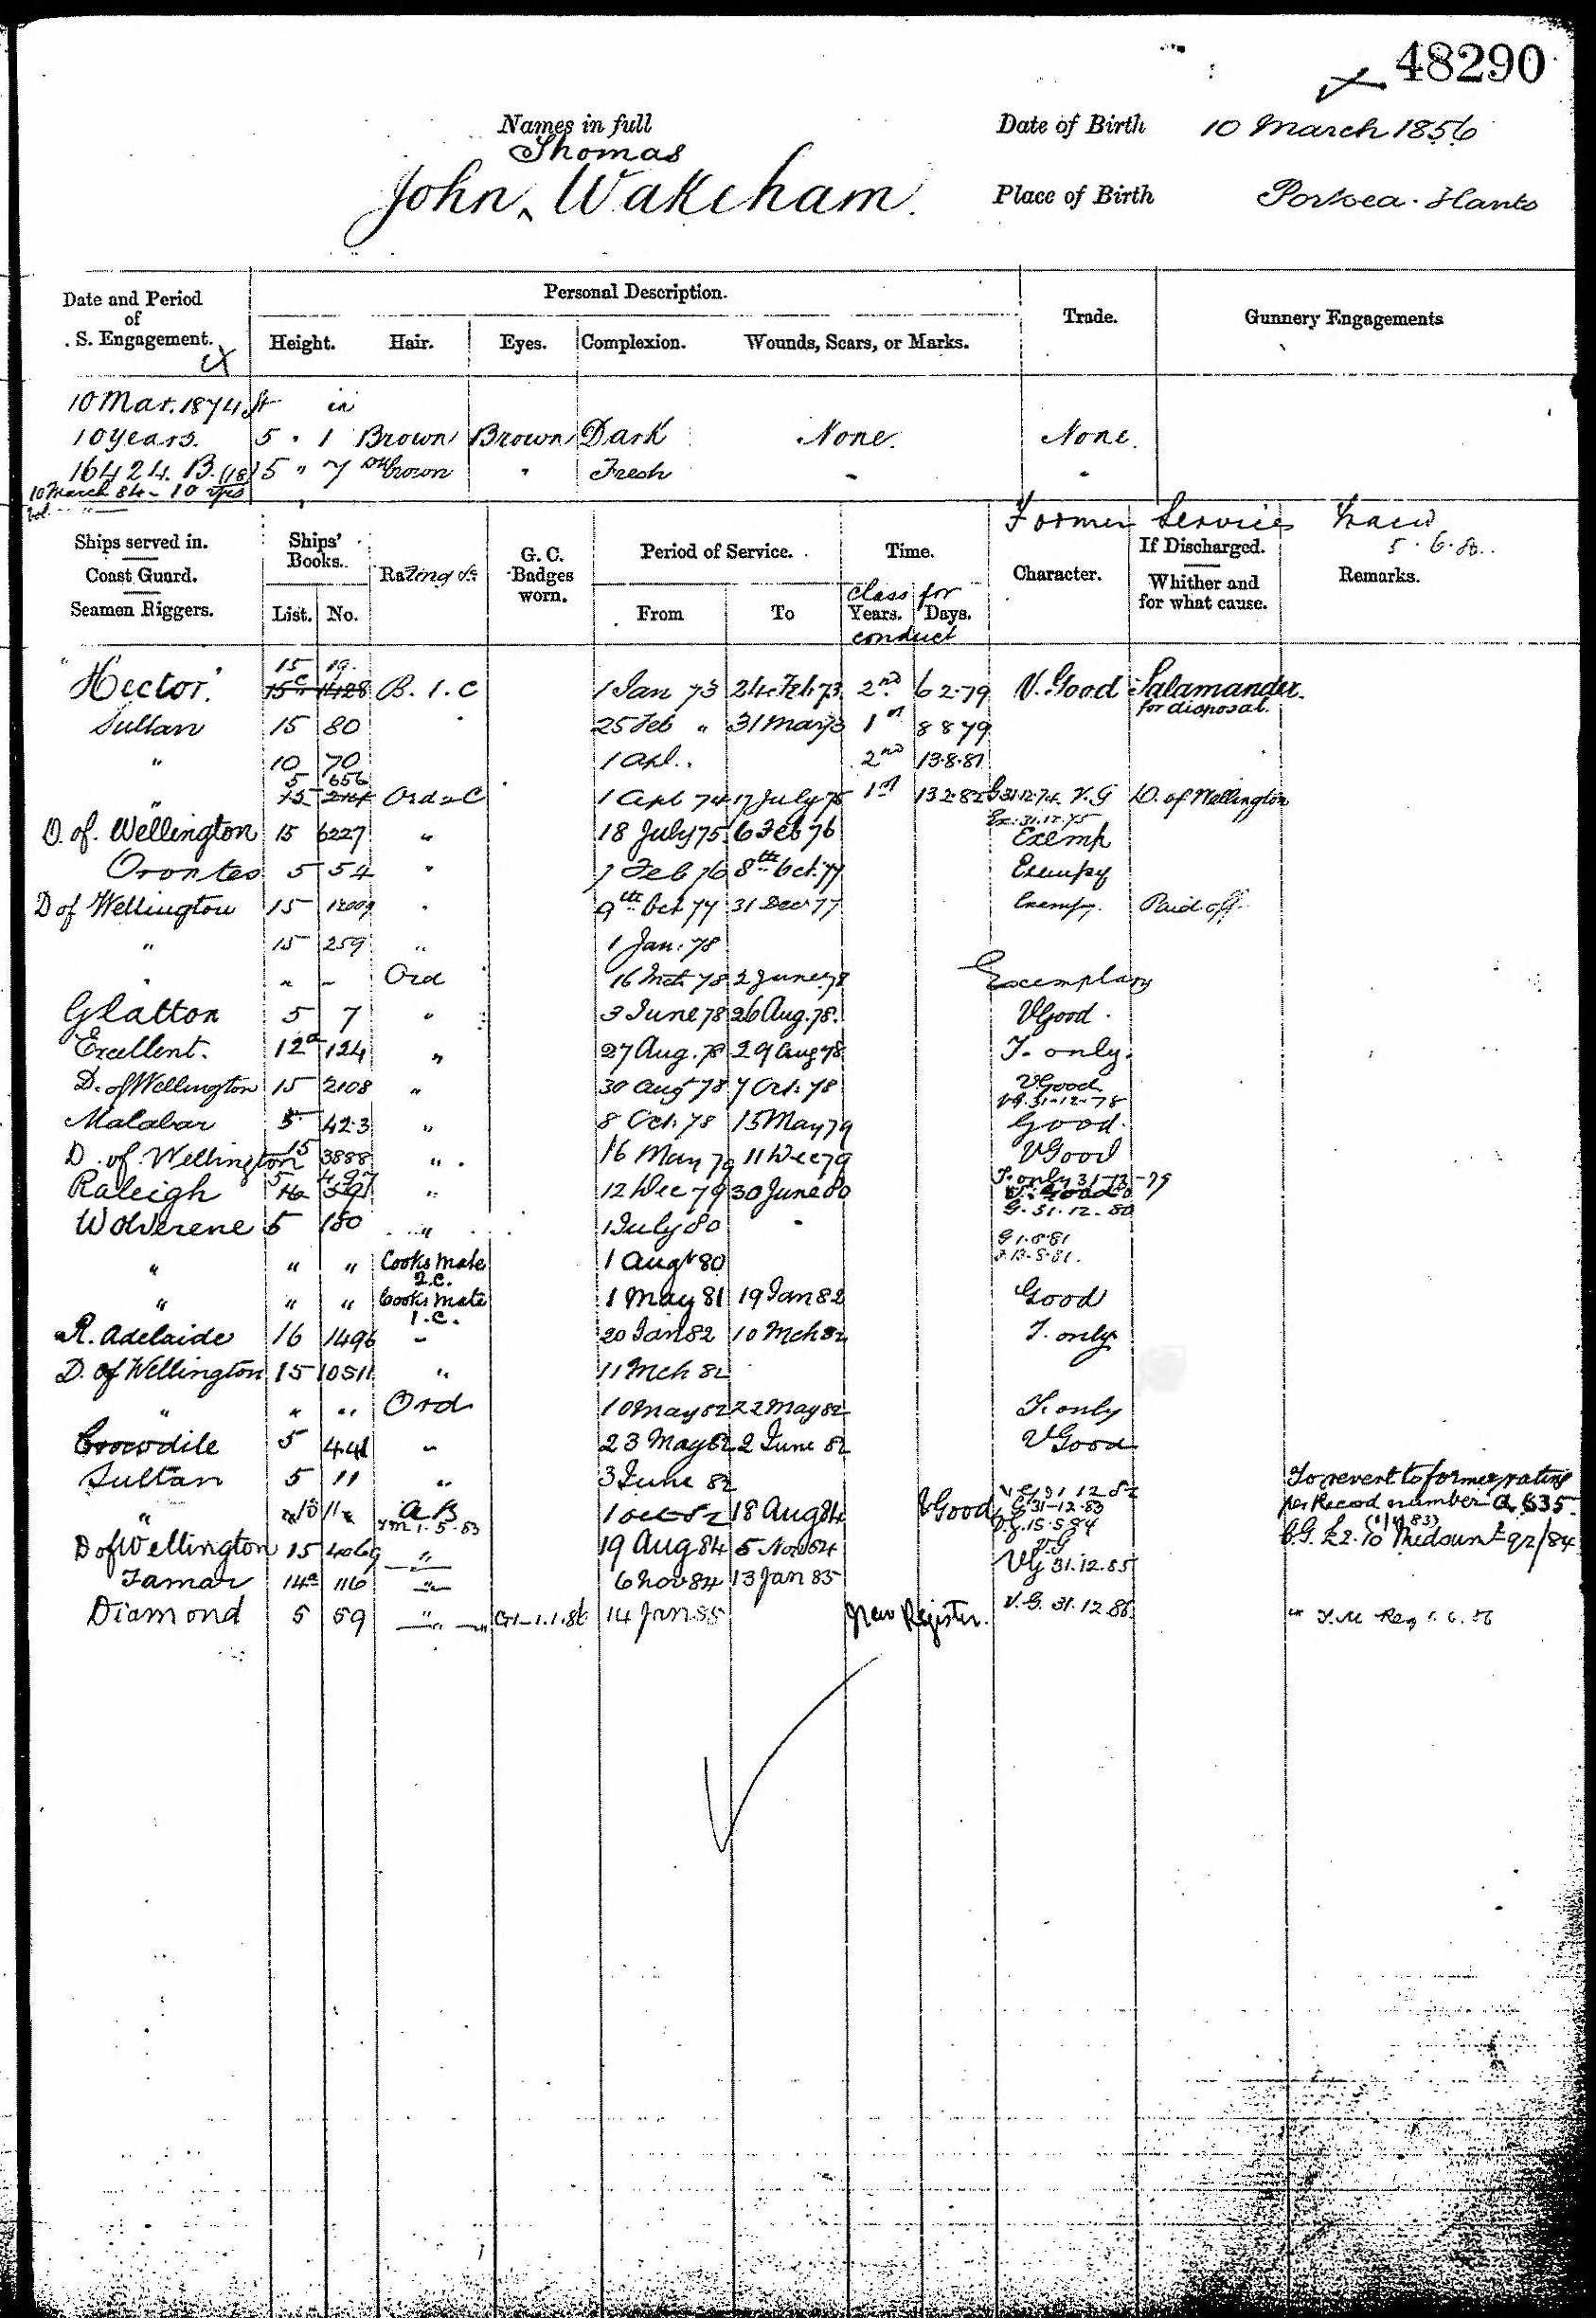 48290
Names in full
Thomas
John ‸ Wakeham.
Date of Birth 10 March 1856
Place of Birth Portsea. Hants
Date and Period of S. Engagement.
Personal Description.
Height. Hair. Eyes. Complexion. Wounds, Scars, or Marks.
Trade.
Gunnery Engagements
10 Mar. 1874 ft in
10 years. 5 " 1 Brown Brown Dark None. None.
16424. B. (18) 5 " 7 Dk brown " Fresh " "
10 March 84 - 10 yrs
vol.
Former Service
5. 6. 80.
Ships served in.
Coast Guard.
Seamen Riggers.
Ships' Books.
List. No.
Rating &c
G. C. Badges worn.
Period of Service.
From To
Time.
Class for
Years. Days.
conduct
Character.
If Discharged.
Whither and for what cause.
Remarks.
15 19.
"Hector" 15c 1428 B. 1. C 1 Jan 73 24 Feb 73 2nd 62.79 V. Good Salamander.
for disposal.
Sultan 15 80 " 25 Feb " 31 Mar 73 1st 8879
" 10 70 1 Apl. 2nd 13.8.81
5 656
" 15 Ord 2 C 1 Apl 74 17 July 75 1st 132.82 31.12.74 V.G D. of Wellington
Ex. 31.12.75
D. of Wellington 15 6227 " 18 July 75 6 Feb 76 Exemp
Orontes 5 54 " 7 Feb 76 8th Oct. 77 Exempy
D of Wellington 15 12009 " 9th Oct 77 31 Dec 77 Exempy. Paid off.
" 15 259 " 1 Jan. 78
" " " Ord 16 Mch 78 2 June 78 Exemplary
Glatton 5 7 " 3 June 78 26 Aug. 78. VGood.
Excellent. 12a 124 " 27 Aug. 78 29 Aug 78 T. only.
D. of Wellington 15 2108 " 30 Aug 78 7 Oct. 78 VGood
VG. 31-12-78
Malabar 5 423 " 8 Oct. 78 15 May 79 Good.
D. of Wellington 15 3888 " 16 May 79 11 Dec 79 VGood
T. only 31-12-79
Raleigh 5 " 12 Dec 79 30 June 80 V. Good
G. 31. 12. 80
Wolverene 5 150 " 1 July 80 "
" " " Cooks Mate 2.C. 1 Augt 80
" " " Cooks Mate 1.C. 1 May 81 19 Jan 82 Good
R. Adelaide 16 1496 " 20 Jan 82 10 Mch 82 T. only
D. of Wellington 15 10511 " 11 Mch 82
" " " Ord 10 May 82 22 May 82 T. only
Crocodile 5 441 " 23 May 82 2 June 82 VGood
Sultan 5 11 " 3 June 82 VG 31 12 82 To revert to former rating
" A B 1 Oct 82 18 Aug 84 VGood G. 31-12-83 per Record number
TM 1.5.83 15.5.84
D of Wellington 15 4069 " 19 Aug 84 5 Nov 84 V.G
Tamar 14a 116 " 6 Nov 84 13 Jan 85 VG 31.12.85
Diamond 5 59 " G1-1.1.86 14 Jan 85 New Register. V.G. 31.12.86